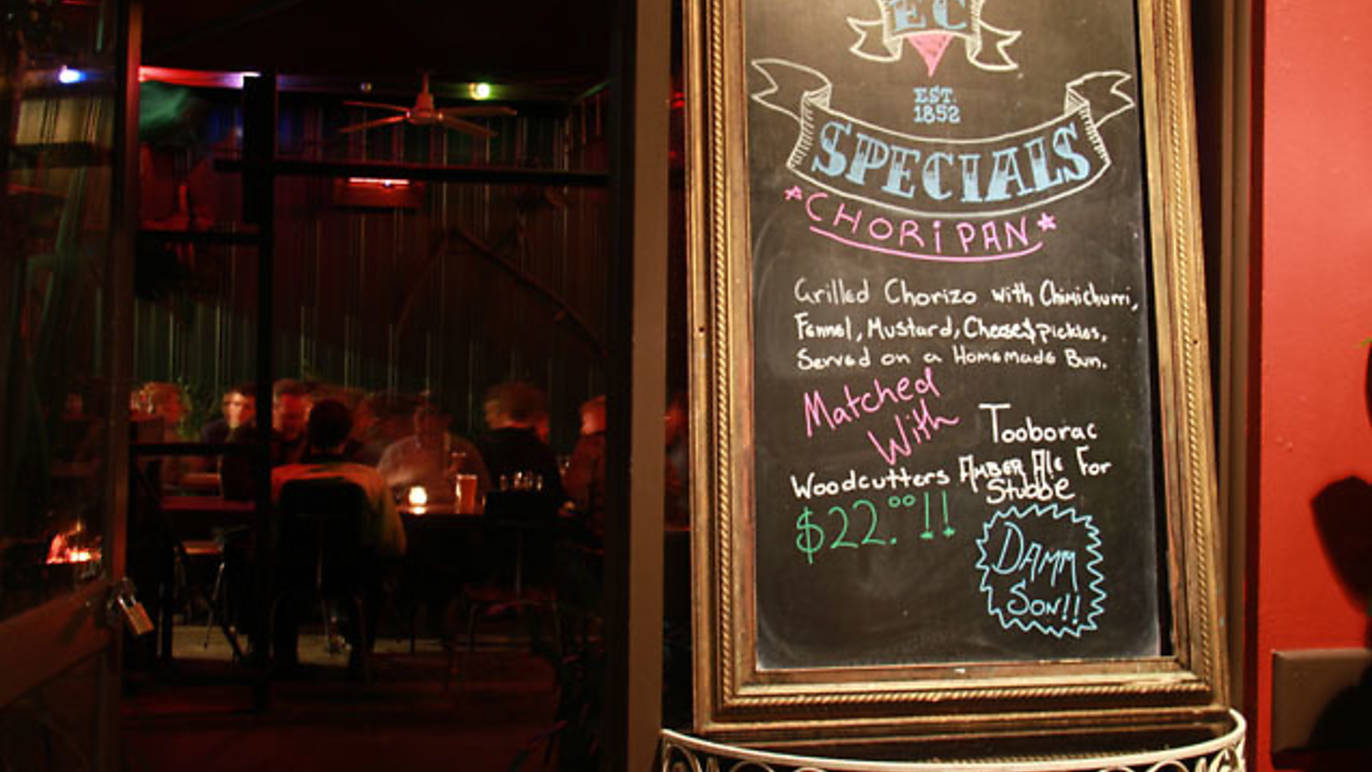 EC
EST.
1852
SPECIALS
*CHORiPAN*
Grilled Chorizo with Chimichurri,
Fennel, Mustard, Cheese & pickles,
Served on a Homemade Bun.
Matched
With
Tooborac
Woodcutters AMBER Ale For
Stubbie
$22.00!!
DAMM
SON!!